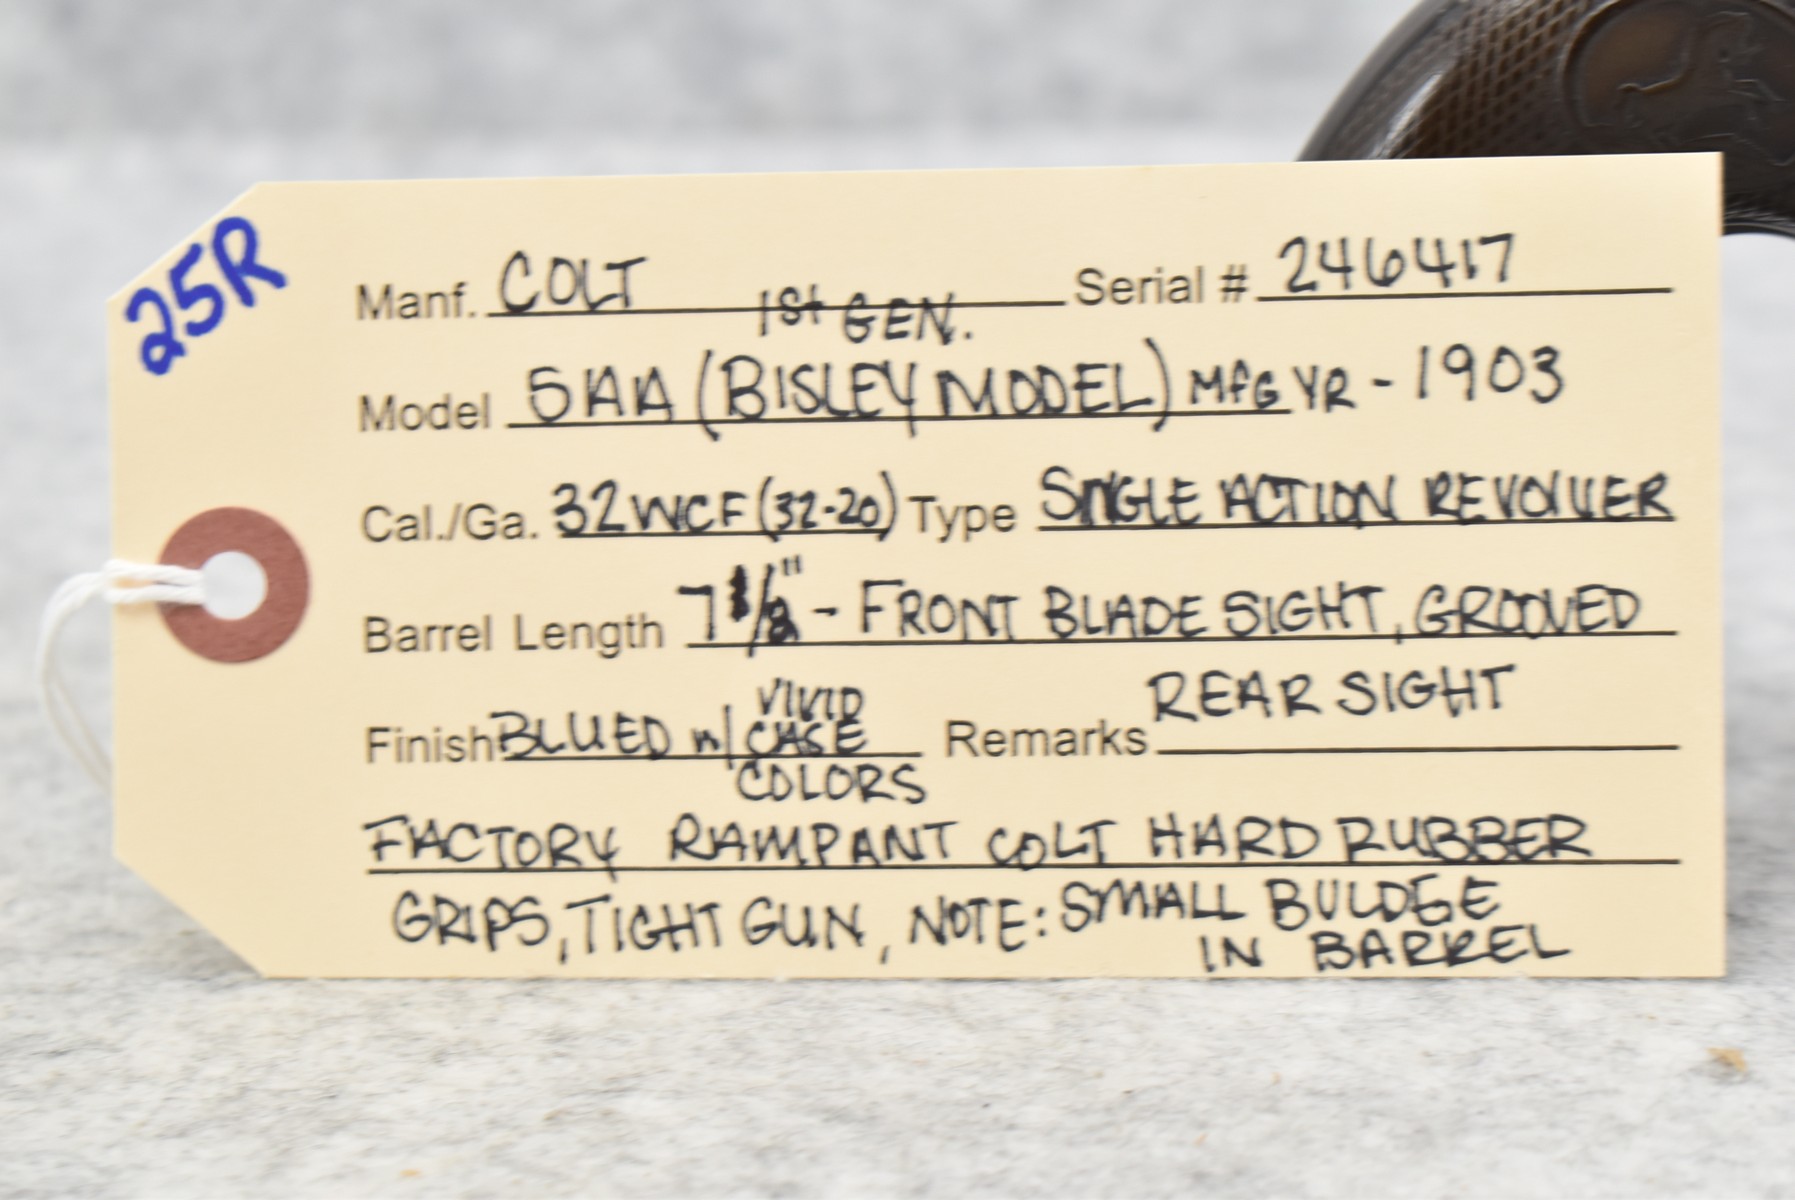 25R
Manf. COLT Serial # 246417
1st GEN.
Model SAA (BISLEY MODEL) MFG YR - 1903
Cal./Ga. 32 WCF (32-20) Type SINGLE ACTION REVOLVER
Barrel Length 7 1/2" - FRONT BLADE SIGHT, GROOVED
REAR SIGHT
Finish BLUED w/ VIVID CASE COLORS Remarks
FACTORY RAMPANT COLT HARD RUBBER
GRIPS, TIGHT GUN, NOTE: SMALL BULDGE
IN BARREL